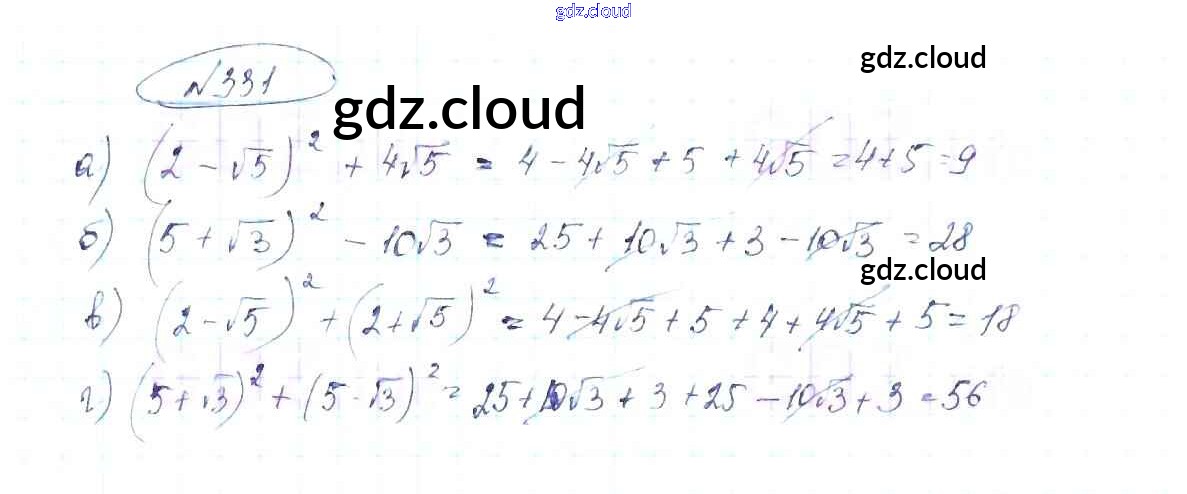 gdz.cloud
gdz.cloud
№331
gdz.cloud
а) (2 - √5)² + 4√5 = 4 - 4√5 + 5 + 4√5 = 4 + 5 = 9
б) (5 + √3)² - 10√3 = 25 + 10√3 + 3 - 10√3 = 28
gdz.cloud
в) (2 - √5)² + (2 + √5)² = 4 - 4√5 + 5 + 4 + 4√5 + 5 = 18
г) (5 + √3)² + (5 - √3)² = 25 + 10√3 + 3 + 25 - 10√3 + 3 = 56